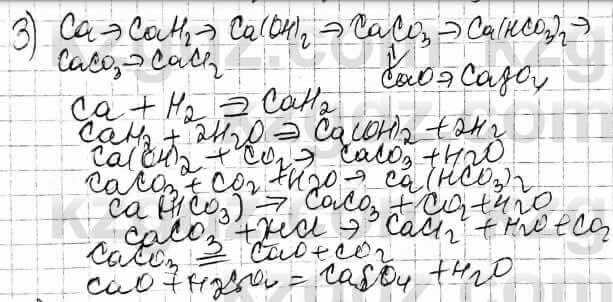 3) Ca → CaH₂ → Ca(OH)₂ → CaCO₃ → Ca(HCO₃)₂ →
CaCO₃ → CaCl₂
↓
CaO → CaSO₄
Ca + H₂ = CaH₂
CaH₂ + 2H₂O = Ca(OH)₂ + 2H₂
Ca(OH)₂ + CO₂ → CaCO₃ + H₂O
CaCO₃ + CO₂ + H₂O → Ca(HCO₃)₂
Ca(HCO₃) → CaCO₃ + CO₂ + H₂O
CaCO₃ + HCl → CaCl₂ + H₂O + CO₂
CaCO₃ = CaO + CO₂
CaO + H₂SO₄ = CaSO₄ + H₂O